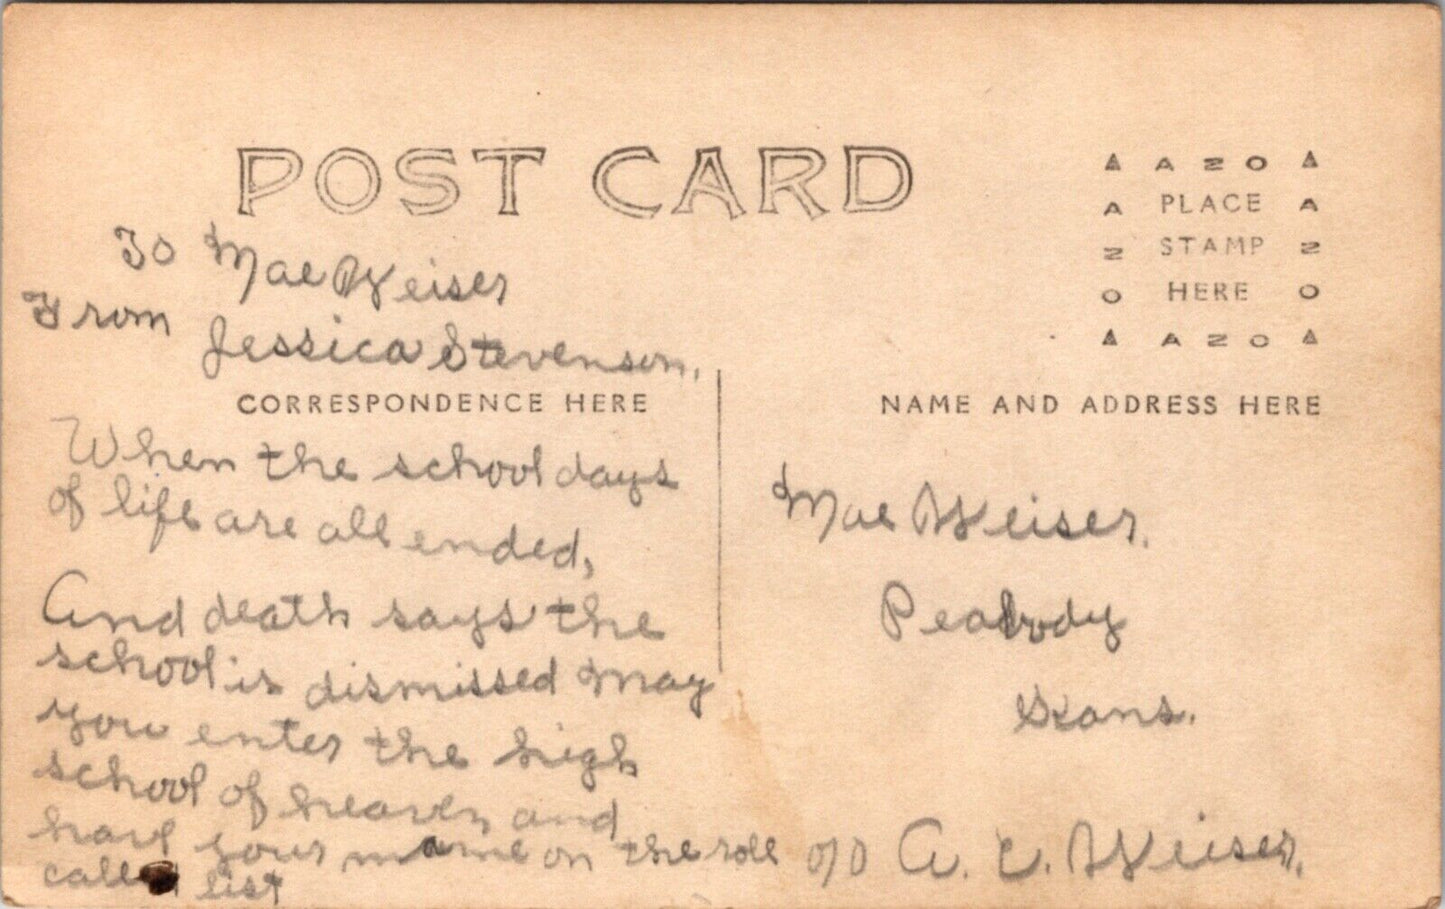 POST CARD
▲ A Z O ▲
A PLACE A
Z STAMP Z
O HERE O
▲ A Z O ▲
To Mae Weiser
From
Jessica Stevenson.
CORRESPONDENCE HERE
When the school days
of life are all ended,
And death says the
school is dismissed May
you enter the high
school of heaven and
have your name on the roll
list
NAME AND ADDRESS HERE
Mae Weiser.
Peabody
Kans.
A. C. Weiser.